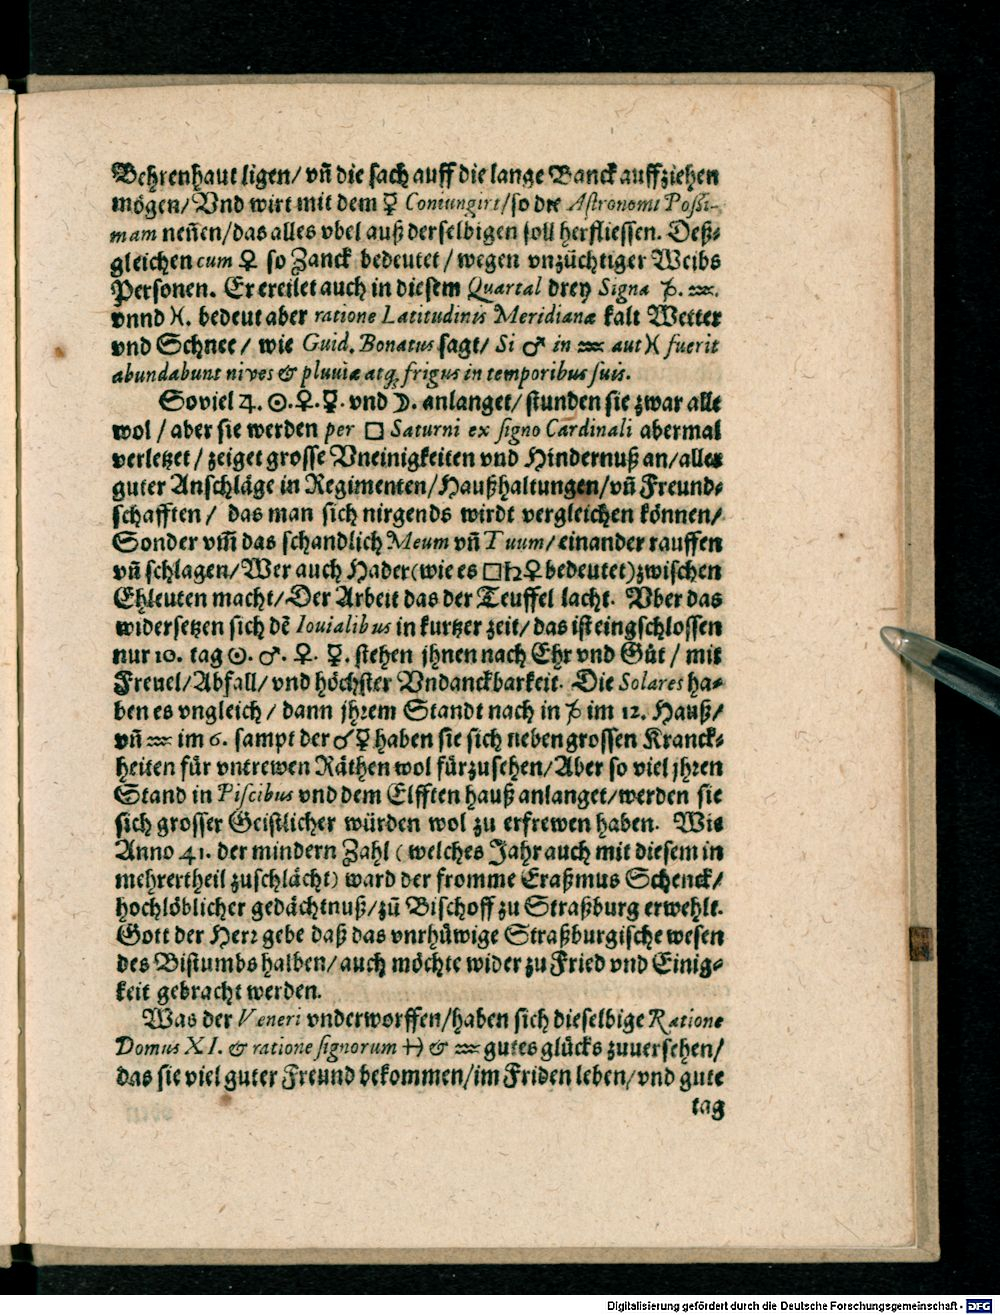 Behrenhaut ligen/ vñ die sach auff die lange Banck auffziehen
mögen/ Vnd wirt mit dem ☿ Coniungirt/ so die Astronomi Pessi-
mam neñen/ das alles vbel auß derselbigen soll herfliessen. Deß-
gleichen cum ♀ so Zanck bedeutet/ wegen vnzüchtiger Weibs
Personen. Er ereilet auch in diesem Quartal drey Signa ♑. ♒.
vnnd ♓. bedeut aber ratione Latitudinis Meridianæ kalt Wetter
vnd Schnee/ wie Guid. Bonatus sagt/ Si ♂ in ♒ aut ♓ fuerit
abundabunt nives & pluviæ atq; frigus in temporibus suis.
Soviel ♃. ☉. ♀. ☿. vnd ☽. anlanget/ stunden sie zwar alle
wol/ aber sie werden per □ Saturni ex signo Cardinali abermal
verletzet/ zeiget grosse Vneinigkeiten vnd Hindernuß an/ aller
guter Anschläge in Regimenten/ Haußhaltungen/ vñ Freund-
schafften/ das man sich nirgends wirdt vergleichen können/
Sonder vm̃ das schandlich Meum vñ Tuum/ einander rauffen
vñ schlagen/ Wer auch Hader (wie es □ ♄ ♀ bedeutet) zwischen
Ehleuten macht/ Der Arbeit das der Teuffel lacht. Vber das
widersetzen sich dẽ Iouialibus in kurtzer zeit/ das ist eingschlossen
nur 10. tag ☉. ♂. ♀. ☿. stehen jhnen nach Ehr vnd Güt/ mit
Freuel/ Abfall/ vnd höchster Vndanckbarkeit. Die Solares ha-
ben es vngleich/ dann jhrem Standt nach in ♑ im 12. Hauß/
vñ ♒ im 6. sampt der ☌ ☿ haben sie sich neben grossen Kranck-
heiten für vntrewen Räthen wol fürzusehen/ Aber so viel jhren
Stand in Piscibus vnd dem Elfften hauß anlanget/ werden sie
sich grosser Geistlicher würden wol zu erfrewen haben. Wie
Anno 41. der mindern Zahl (welches Jahr auch mit diesem in
mehrertheil zuschlächt) ward der fromme Eraßmus Schenck/
hochlöblicher gedächtnuß/ zů Bischoff zu Straßburg erwehlt.
Gott der Herr gebe daß das vnrhüwige Straßburgische wesen
des Bistumbs halben/ auch möchte wider zu Fried vnd Einig-
keit gebracht werden.
Was der Veneri vnderworffen/ haben sich dieselbige Ratione
Domus XI. & ratione signorum ♓ & ♒ gutes glücks zuuersehen/
das sie viel guter Freund bekommen/ im Friden leben/ vnd gute
tag
Digitalisierung gefördert durch die Deutsche Forschungsgemeinschaft - DFG